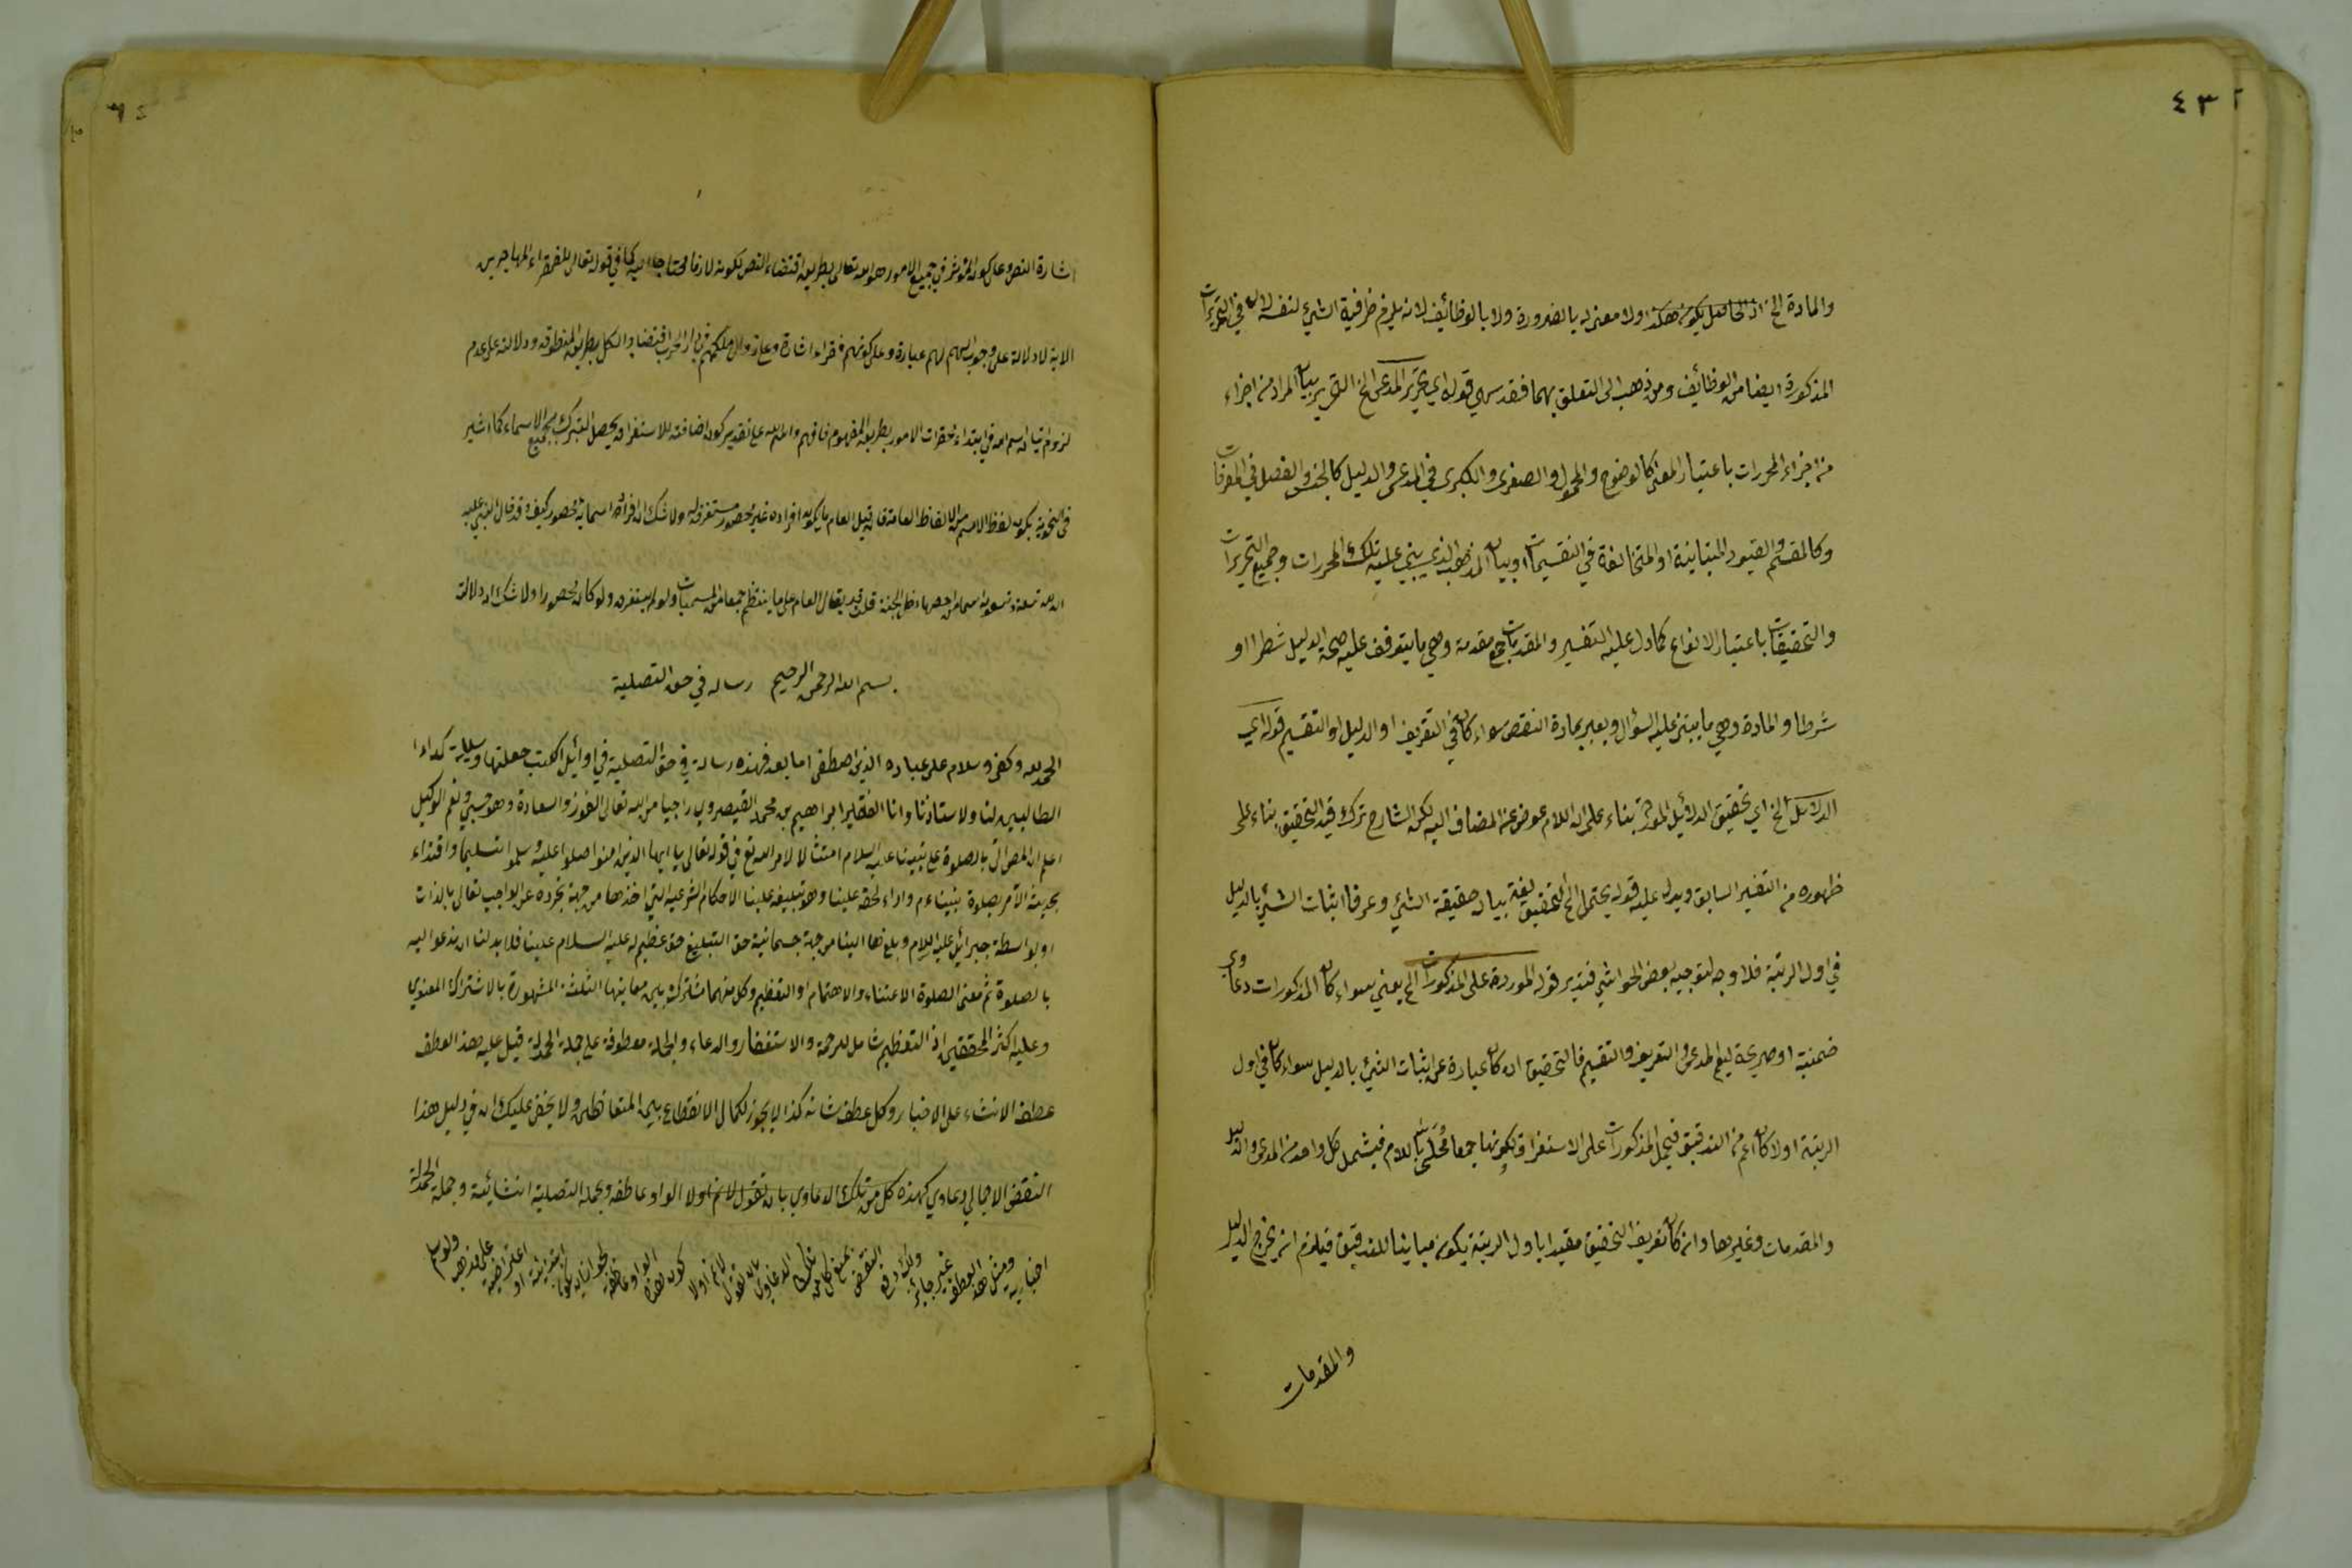 ٤٣
والمادة الخ اذ الحاصل يكون هكذا ولا معنى له بالضرورة ولا بالوظائف لانه يلزم ظرفية الشيء لنفسه لان في التحريرات
المذكورة ايضا من الوظائف ومن ذهب الى التعلق بهما فقد سهى قوله اي تحرير المدعى الخ التحرير بيان المراد من اجزاء
من اجزاء المحررات باعتبار المعنى كالموضوع والمحمول والصغرى والكبرى في المدعى والدليل كالجنس والفصل في المعرفات
وكالمقسم والقيود المتباينة او المتخالفة في التقسيمات او بيان المذهب الذي يبنى عليه تلك المحررات وجميع التحريرات
والتحقيقات باعتبار الانواع كما دل عليه التفسير والمقدمات جمع مقدمة وهي ما يتوقف عليه صحة الدليل شطرا او
شرطا والمادة وهي ما يبتنى عليه السؤال ويعبر بمادة النقص سواء كان في التعريف او الدليل او التقسيم قوله اي
الدلائل الخ اي تحقيق الدلائل الموردة بناء على ان اللام عوض عن المضاف اليه لكن الشارح ترك قيد التحقيق بناء على
ظهوره من التفسير السابق ويدل عليه قوله يحتمل الخ التحقيق لغة بيان حقيقة الشيء وعرفا اثبات الشيء بالدليل
في اول الرتبة فلا وجه لتوجيه بعض الحواشي فتدبر قوله الموردة على المذكورات الخ يعني سواء كان المذكورات دعاوي
ضمنية او صريحة ليعم المدعى والتعريف والتقسيم فالتحقيق ان كان عبارة عن اثبات الشيء بالدليل سواء كان في اول
الرتبة اولا كان اعم من التدقيق فيحمل المذكورات على الاستغراق لكونها جمعا محلى باللام فيشمل كل واحد من المدعى والدليل
والمقدمات وغيرها وان كان تعريف التحقيق مقيدا باول الرتبة يكون مباينا للتدقيق فيلزم ان يخرج الدليل
والمقدمات
اشارة النص وعلى كون المؤثر في جميع الامور هو الله تعالى بطريق اقتضاء النص لكونه لازما محتاجا اليه كما في قوله تعالى للفقراء المهاجرين
الاية لا دلالة على وجوب السهم لهم عبارة وعلى كونهم فقراء اشارة وعلى زوال ملكهم في دار الحرب اقتضاء والكل بطريق المنطوق ودلالته على عدم
لزوم اتيان اسم الله في ابتداء محقرات الامور بطريق المفهوم فافهم والله على تقدير كون اضافته للاستغراق يحصل التبرك بجميع الاسماء كما اشير
يكون لفظ الاسم من الالفاظ العامة فان قيل العام ما يكون افراده غير محصور مستغرقة ولا شك ان افراد اسمائه محصور كيف وقد قال النبي عليه
ان لله تسعة وتسعون اسما من احصاها دخل الجنة قلت قد يقال العام على ما ينتظم جمعا من المسميات ولو لم يستغرق ولو كان محصورا ولا شك ان دلالة
بسم الله الرحمن الرحيم رساله في حق التصلية
الحمد لله وكفى وسلام على عباده الذين اصطفى اما بعد فهذه رسالة في حق التصلية في اوائل الكتب جعلتها وسيلة
الطالبين لنا ولاستاذنا وانا الفقير ابراهيم بن محمد القيصروي راجيا من الله تعالى الفوز والسعادة وهو حسبي ونعم الوكيل
اعلم ان المص اتى بالصلوة على نبينا عليه السلام امتثالا لامر الله تع في قوله تعالى يا ايها الذين امنوا صلوا عليه وسلموا تسليما واقتداء
بحديث الآمر بصلوة نبيناءم واداء لحقه علينا وهو تبليغه علينا الاحكام الشرعيه التي اخذها من جهة تجرده عن الواجب تعالى بالذات
او بواسطة جبرائيل عليه السلام وبلغها الينا من جهة جسمانية حق التبليغ حق عظيم له عليه السلام علينا فلا بد لنا ان ندعو اليه
بالصلوة ثم معنى الصلوة الاعتناء والاهتمام او التعظيم وكل منهما مشترك بين معاينها الثلثة المشهورة بالاشتراك المعنوي
وعليه اكثر المحققين اذ التعظيم شامل للرحمة والاستغفار والدعاء والجملة معطوفة على جملة الحمدلة قيل عليه هذا العطف
عطف الانشاء على الاخبار وكل عطف شانه كذا لا يجوز لكمال الانقطاع بين المتعاطفين ولا يخفى عليك ان في دليل هذا
النقض الاجمالي دعاوي كهذه كل من تلك الدعاوي بان نقول لانم اولا الواو عاطفه وجملة التصلية انشائية وجملة الحمدلة
اخباريه ومثل هذا العطف غير جائز ولك دفع النقض بمنع كل من تلك الدعاوى بان نقول لانم اولا كون هذه الواو عاطفة لجواز ان يكون ابتدائية او اعتراضية على مذهب ولو سلم